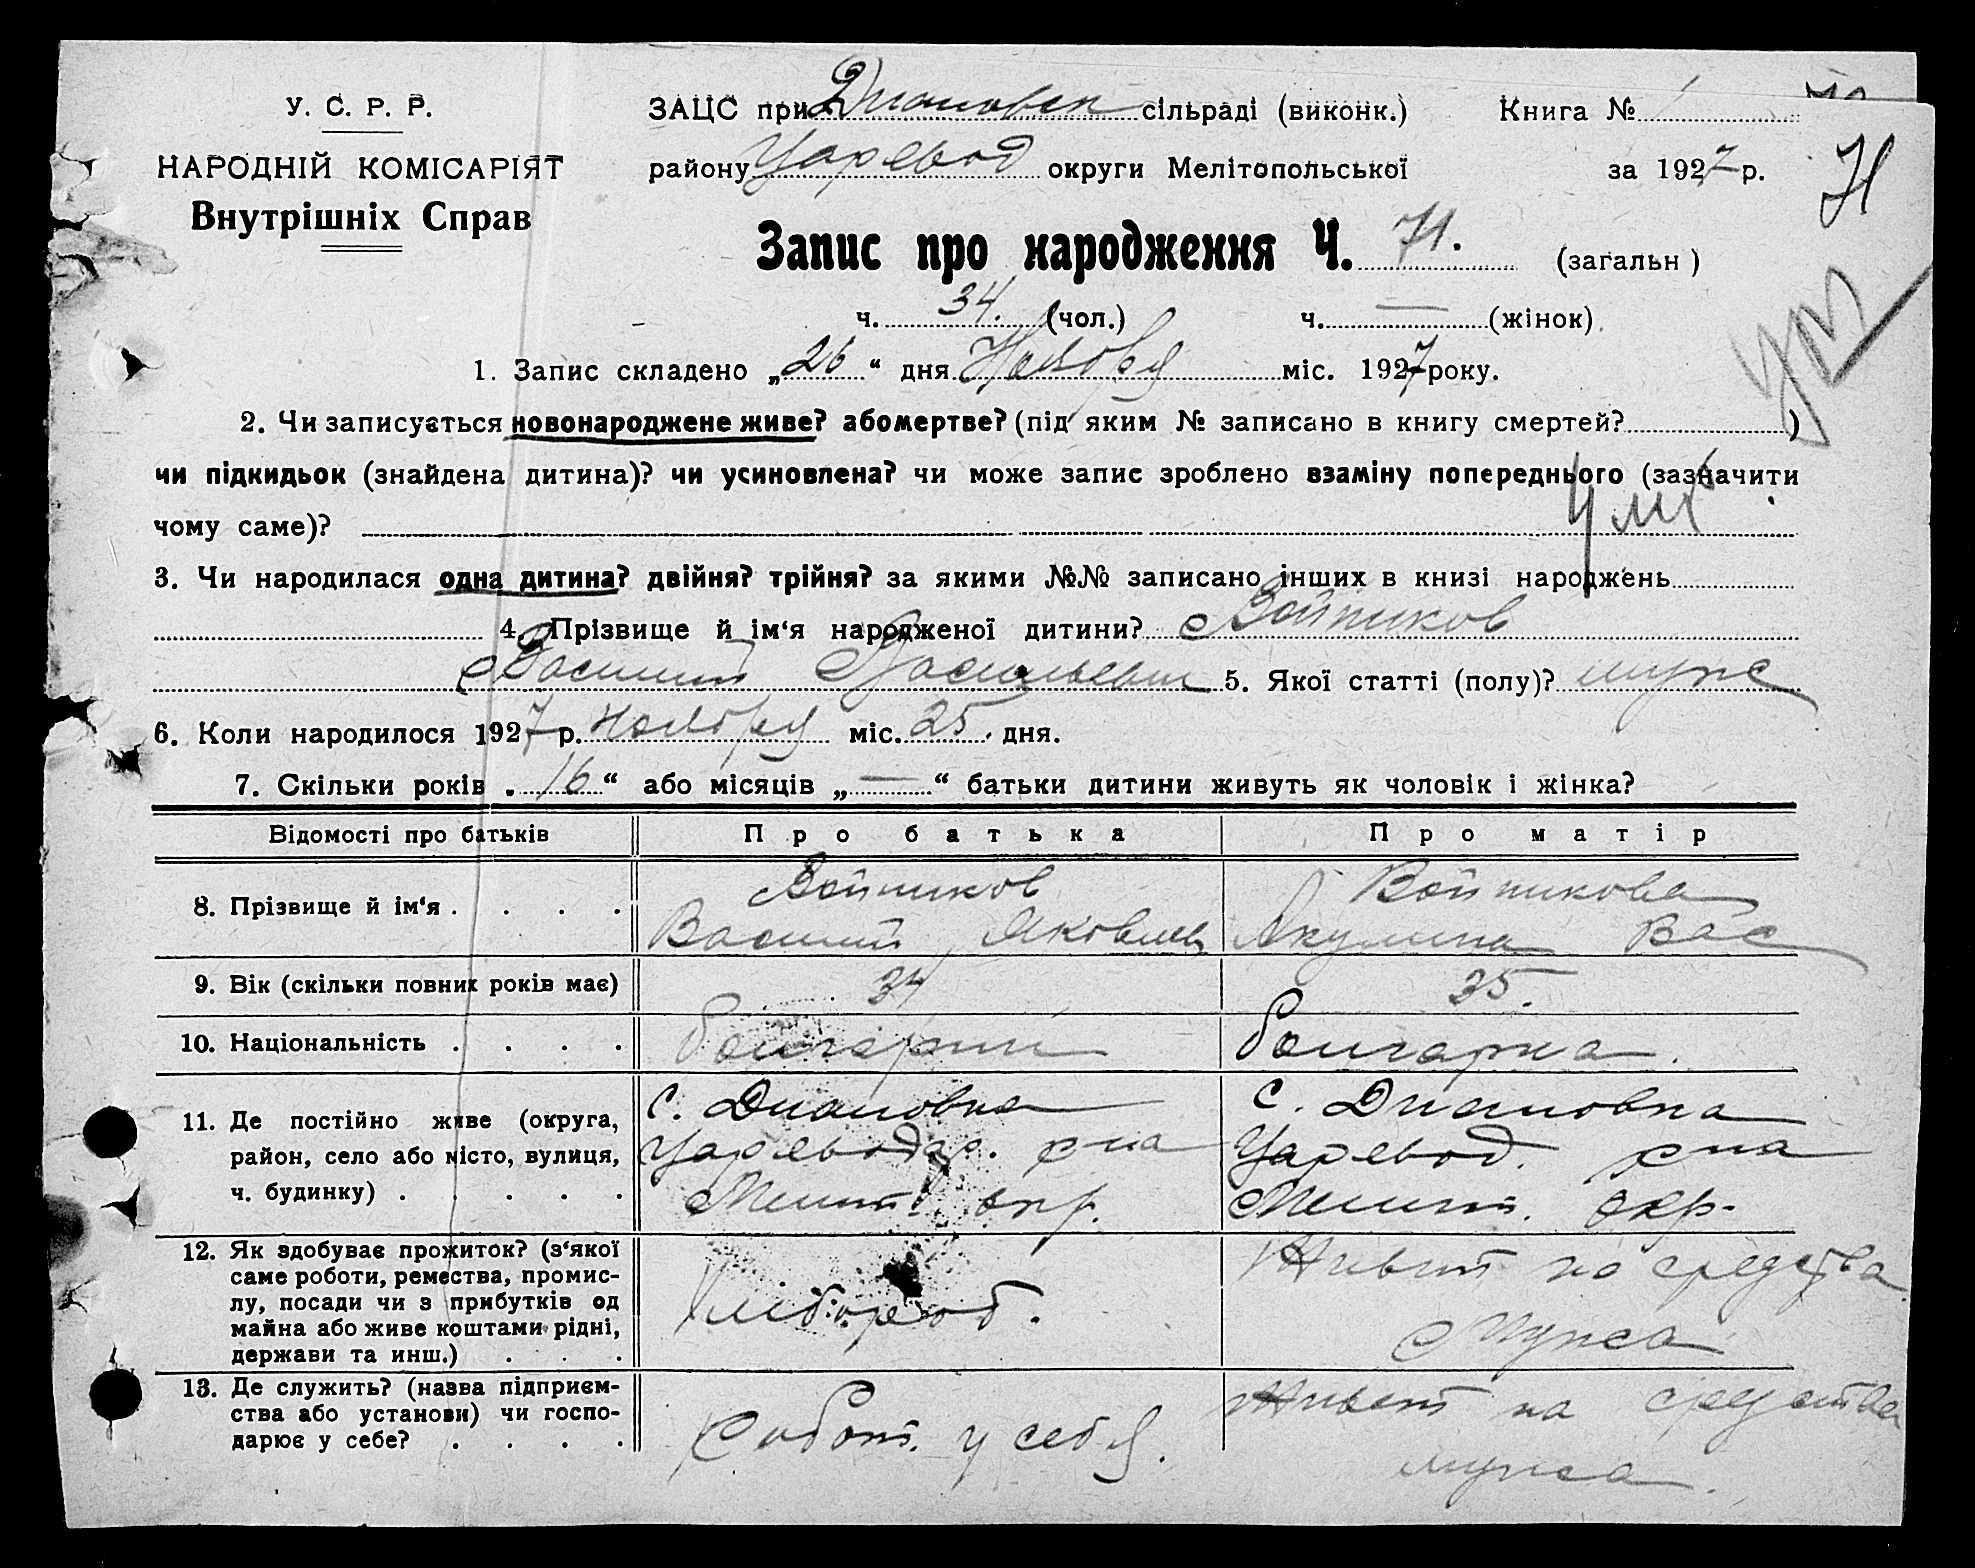 У. С. Р. Р.
НАРОДНІЙ КОМІСАРІЯТ
Внутрішніх Справ
ЗАЦС при Диановск сільраді (виконк.) Книга №
району Царевод округи Мелітопольської за 1927 р.
71
Запис про народження Ч. 71. (загальн)
ч. 34. (чол.) ч. — (жінок)
1. Запис складено „26“ дня Ноября міс. 1927 року.
2. Чи записується новонароджене живе? або мертве? (під яким № записано в книгу смертей? )
чи підкидьок (знайдена дитина)? чи усиновлена? чи може запис зроблено взаміну попереднього (зазначити
чому саме)?
3. Чи народилася одна дитина? двійня? трійня? за якими №№ записано інших в книзі народжень
4. Прізвище й ім‘я народженої дитини? Войников
Василий Васильевич 5. Якої статті (полу)? муже
6. Коли народилося 1927 р. ноября міс. 25 дня.
7. Скільки років „16“ або місяців „—“ батьки дитини живуть як чоловік і жінка?
Відомості про батьків Про батька Про матір
8. Прізвище й ім‘я . . . . Войников Василий Яковлев Войникова Акулина Вас
9. Вік (скільки повних років має) 34 35.
10. Національність . . . . болгарин болгарка.
11. Де постійно живе (округа,
район, село або місто, вулиця,
ч. будинку) . . . . .
с. Диановка
Цареводар. р-на
Мелит. окр.
с. Диановка
Царевод. р-на
Мелит. окр.
12. Як здобуває прожиток? (з‘якої
саме роботи, ремества, промис-
лу, посади чи з прибутків од
майна або живе коштами рідні,
держави та инш.) . . .
хлібороб.
Живет на средства
мужа
13. Де служить? (назва підприєм-
ства або установи) чи госпо-
дарює у себе? . . . .
Работ. у себя.
Живет на средства
мужа.